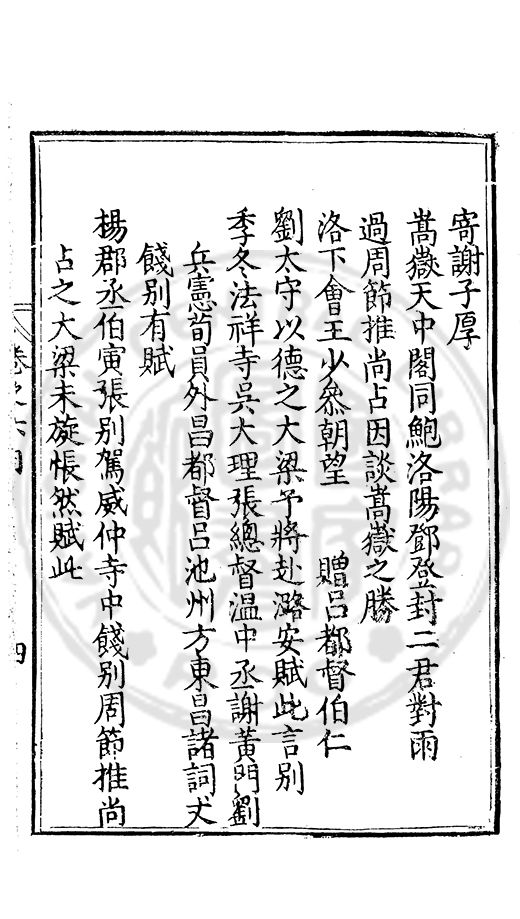 寄謝子厚
嵩嶽天中閣同鮑洛陽鄧登封二君對雨
過周節推尚占因談嵩嶽之勝
洛下會王少叅朝望 贈呂都督伯仁
劉太守以德之大梁予將赴潞安賦此言别
季冬法祥寺吳大理張總督溫中丞謝黃門劉
兵憲荀員外昌都督呂池州方東昌諸詞丈
餞别有賦
楊郡丞伯寅張别駕威仲寺中餞别周節推尚
占之大梁未旋悵然賦此
卷之六目 四